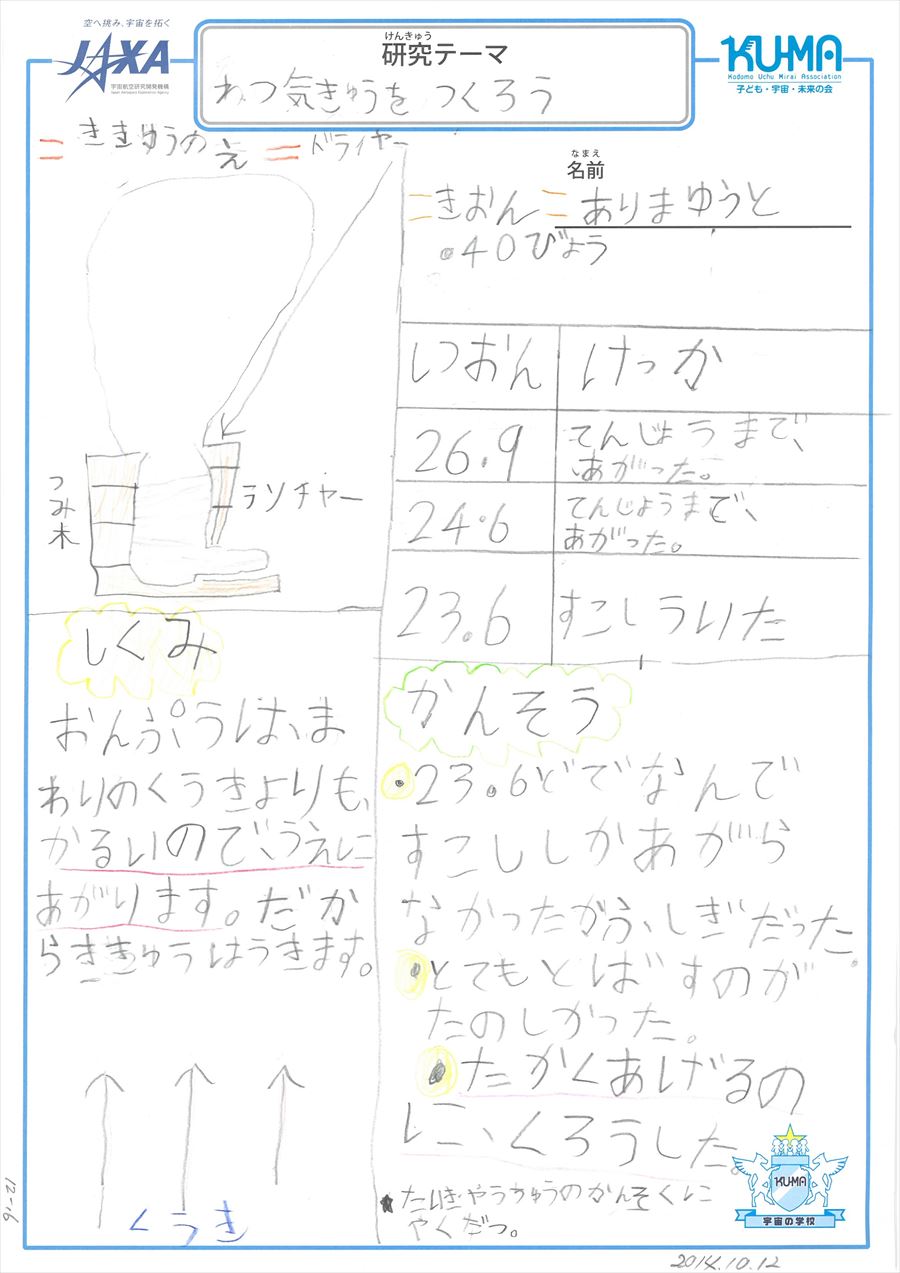 空へ挑み、宇宙を拓く
JAXA
宇宙航空研究開発機構
Japan Aerospace Exploration Agency
けんきゅう
研究テーマ
ねつ気きゅうを つくろう
KU-MA
Kodomo Uchu Mirai Association
子ども・宇宙・未来の会
なまえ
名前
ありまゆうと
=ききゅうのえ=
ドライヤー
ランチャー
つみ木
=きおん=
・40びょう
いおん けっか
26.9 てんじょうまで、
あがった。
24.6 てんじょうまで、
あがった。
23.6 すこしういた
しくみ
おんぷうは、ま
わりのくうきよりも、
かるいので、うえに
あがります。だか
らききゅうはうきます。
くうき
かんそう
・23.6どでなんで
すこししかあがら
なかったがふしぎだった。
・とてもとばすのが
たのしかった。
・たかくあげるの
に、くろうした。
★たいきやうちゅうのかんそくに
やくだつ。
KU-MA
宇宙の学校
12-16
2014.10.12